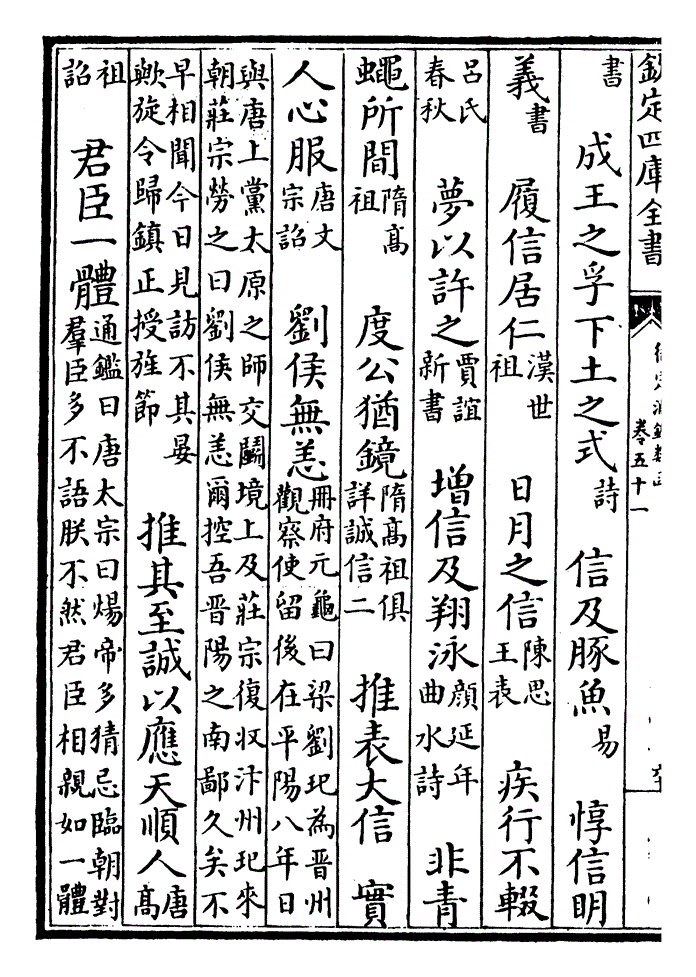 欽定四庫全書
卷五十一
書 成王之孚下土之式詩 信及豚魚易 惇信明
義書 履信居仁漢世祖 日月之信陳思王表 疾行不輟
呂氏春秋 夢以許之賈誼新書 增信及翔泳顏延年曲水詩 非青
蠅所間隋髙祖 度公猶鏡隋髙祖俱詳誠信二 推表大信 實
人心服唐文宗詔 劉侯無恙冊府元龜曰梁劉玘為晉州觀察使留後在平陽八年日
與唐上黨太原之師交鬭境上及莊宗復收汴州玘來
朝莊宗勞之曰劉侯無恙爾控吾晉陽之南鄙久矣不
早相聞今日見訪不其晏歟旋令歸鎮正授旌節 推其至誠以應天順人唐髙
祖詔 君臣一體通鑑曰唐太宗曰煬帝多猜忌臨朝對羣臣多不語朕不然君臣相親如一體